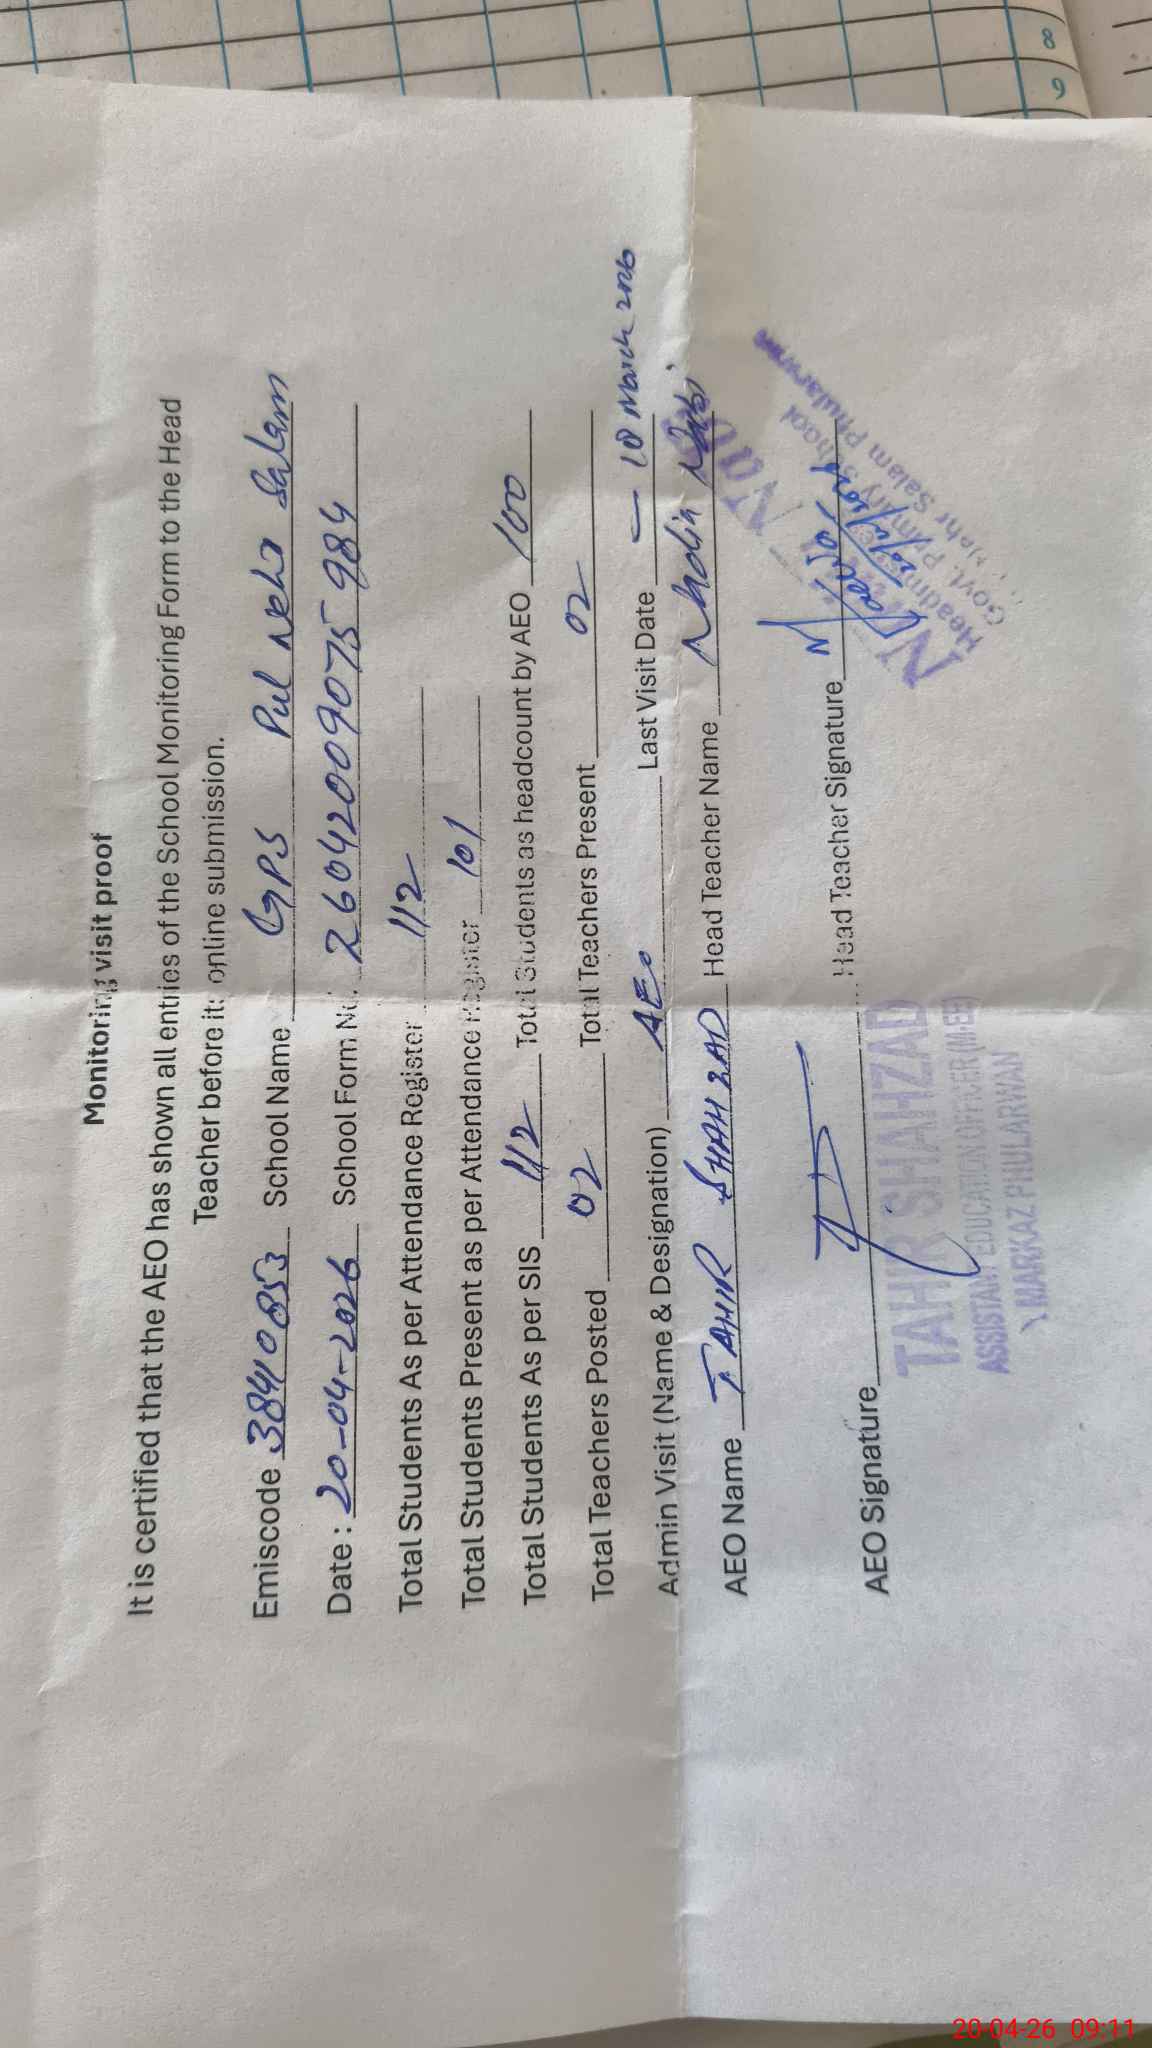 Monitoring visit proof
It is certified that the AEO has shown all entries of the School Monitoring Form to the Head
Teacher before it: online submission.
Emiscode 38410853 School Name GPS Pul Nehr Salam
Date : 20-04-2026 School Form No. 26042009075984
Total Students As per Attendance Register 112
Total Students Present as per Attendance Register 101
Total Students As per SIS 112 Total Students as headcount by AEO 100
Total Teachers Posted 02 Total Teachers Present 02
Admin Visit (Name & Designation) AEO Last Visit Date 10 March 2026
AEO Name TAHIR SHAHZAD Head Teacher Name Nadia Nabi
AEO Signature Head Teacher Signature
20/4/2026
TAHIR SHAHZAD
ASSISTANT EDUCATION OFFICER (M-EE)
MARKAZ PHULARWAN
Nabi
Headmistress
Govt. Primary School
Nehr Salam Phularwan
8
9
20-04-26 09:11